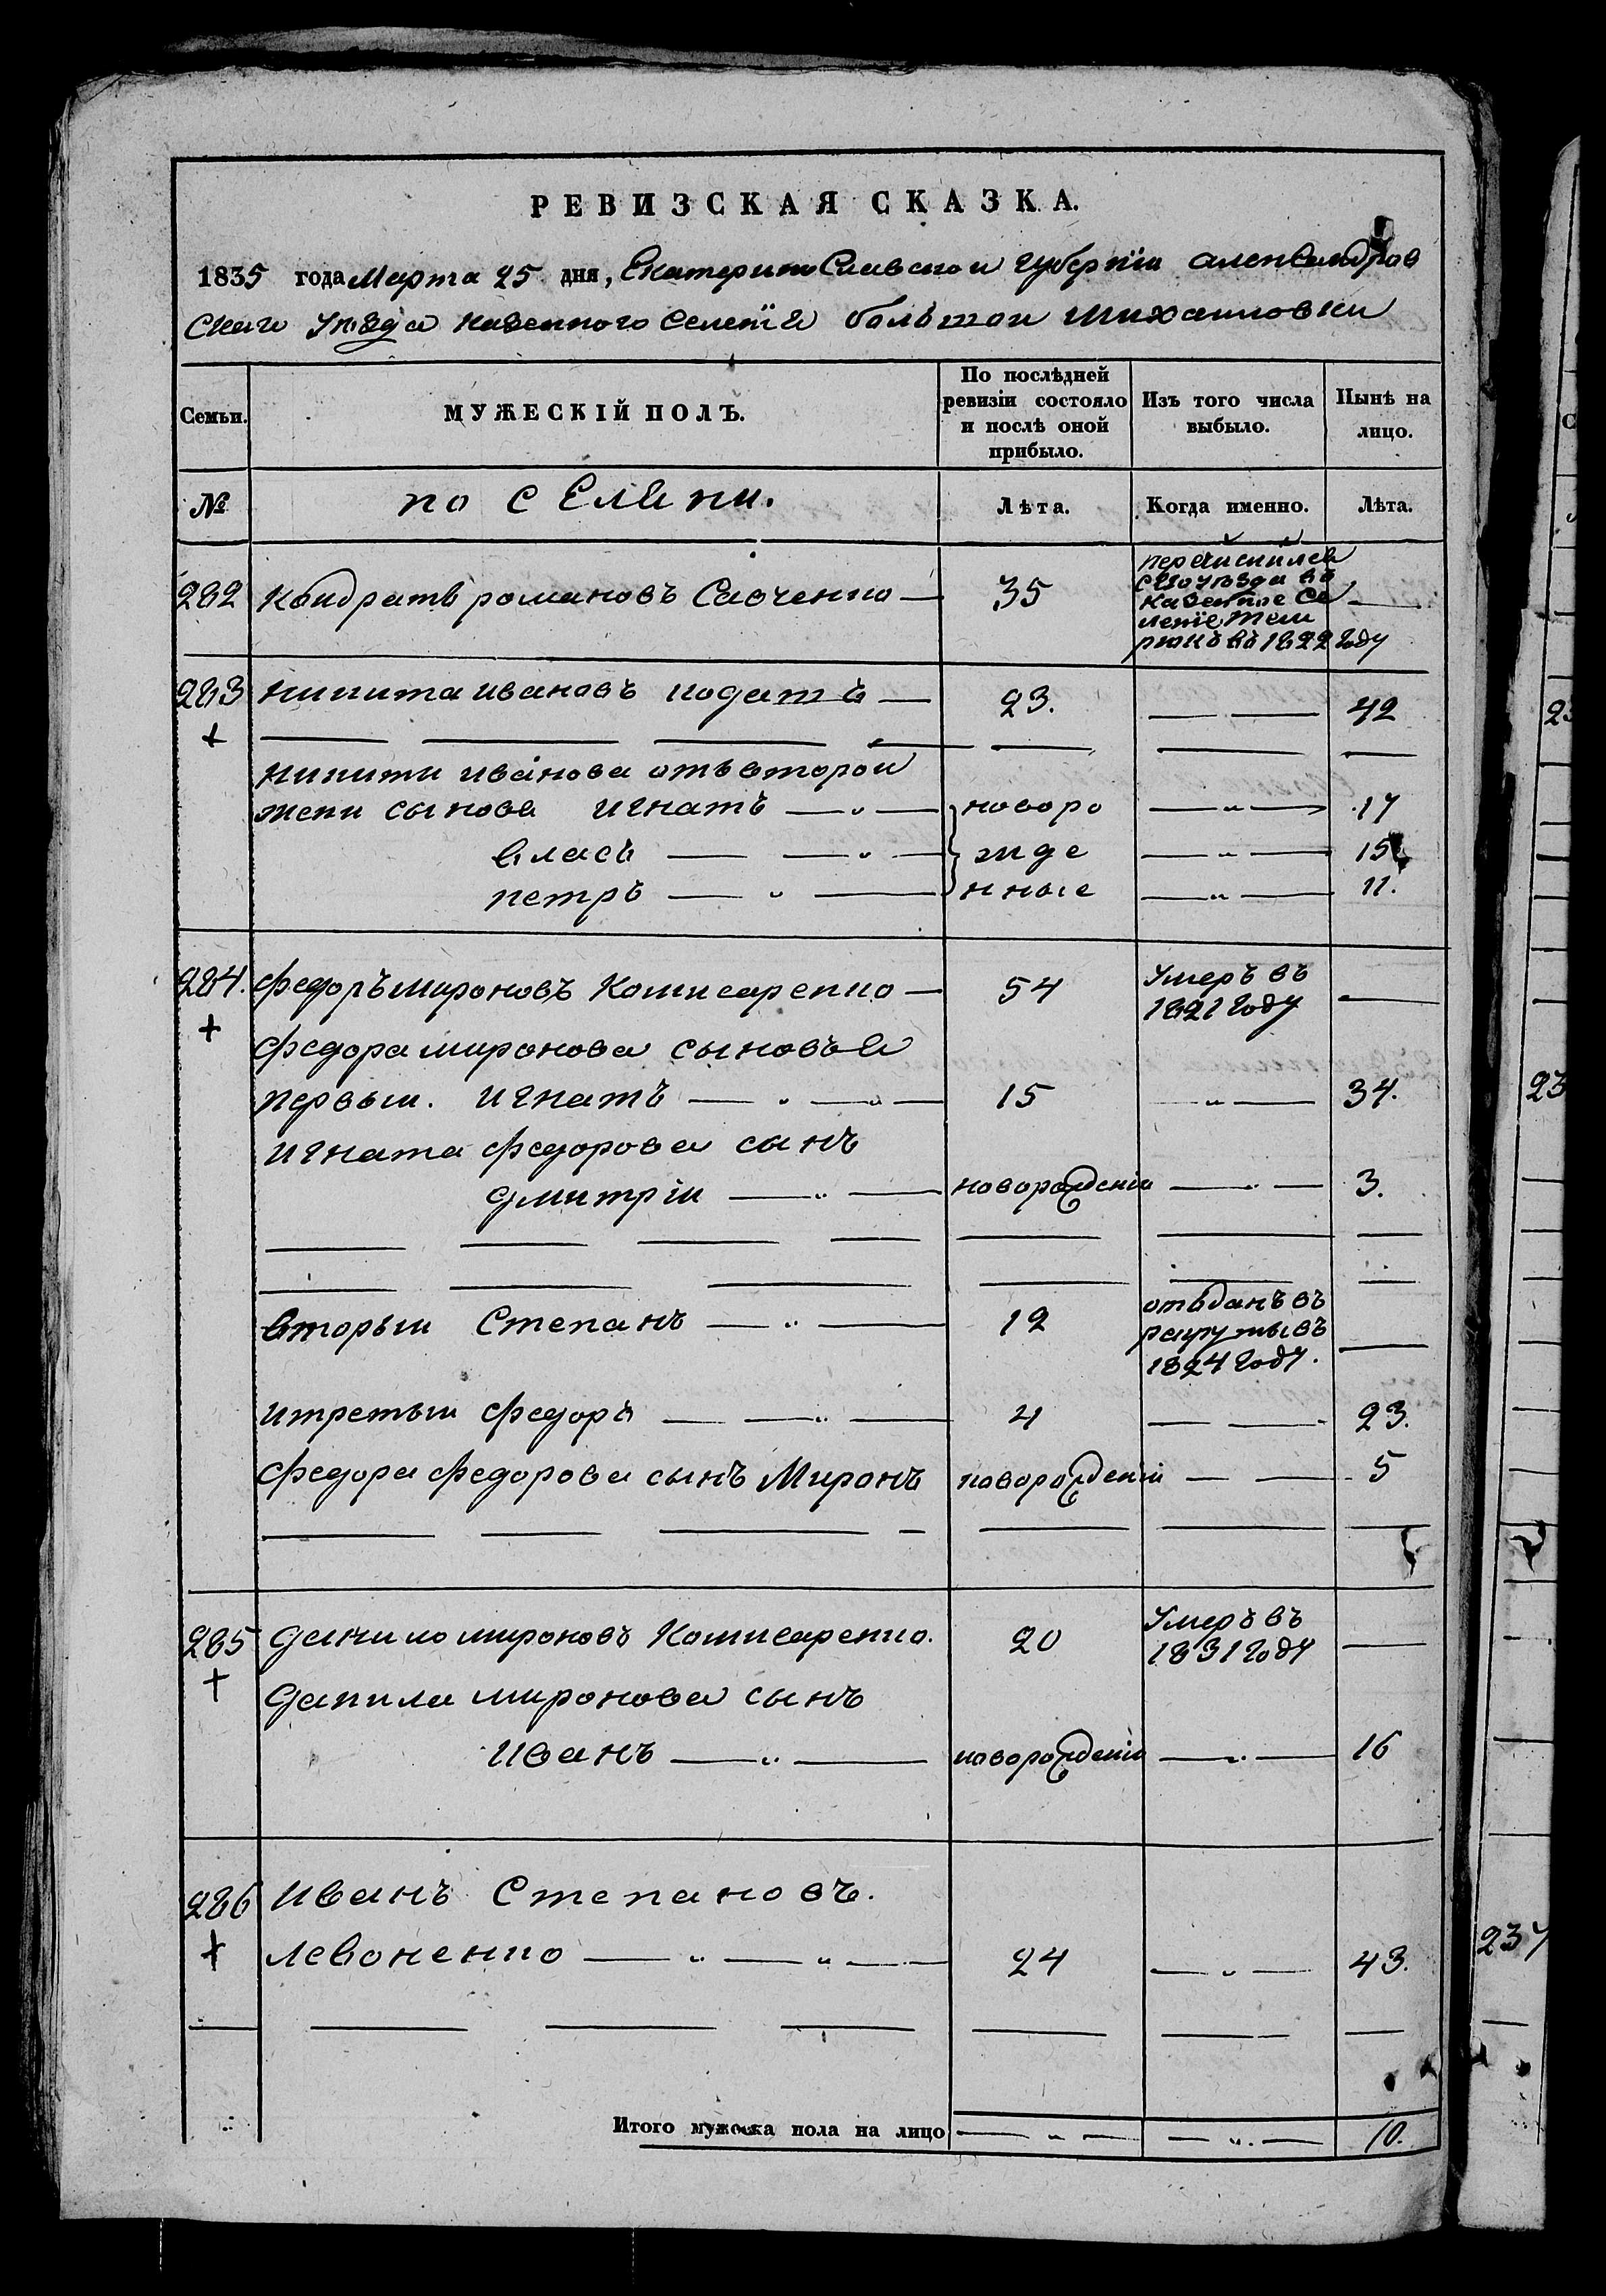 РЕВИЗСКАЯ СКАЗКА.
1835 года Марта 25 дня, Екатеринославской губерніи александров
скаго уѣзда казенного селенія большой михаиловки
Семьи.
МУЖЕСКІЙ ПОЛЪ.
По послѣдней ревизіи состояло и послѣ оной прибыло.
Изъ того числа выбыло.
Нынѣ на лицо.
№
поселяни.
Лѣта.
Когда именно.
Лѣта.
282 кондратъ романовъ Савченко — 35
перечислилсЯ
сего уѣзда въ
казенное се —
леніе тем
рюкъ въ 1822 году
283 никита ивановъ кодатъ — 23. — — 42
+
никити иванова отъ второй
жени сынова игнатъ — новоро — 17
власъ — — жде — 15
петръ — — нные — 11.
284. федоръ мироновъ Комисаренко — 54 умеръ въ —
1821 году
+
федора миронова сыновья
первый. игнатъ — — 15 — 34.
игната федорова сынъ
дмитрій — — новорожденій — — 3.
вторый Степанъ — — 12 отъданъ въ
рекруты въ —
1824 году.
и третьй федоръ — — 4 — — 23.
федора федорова сынъ Миронъ новорожденій — — 5
285 данило мироновъ Комисаренко. 20 умеръ въ
1831 году —
+
данила миронова сынъ
иванъ — — новорожденій — — 16
286 иванъ Степановъ.
+ левоненко — — — 24 — — 43.
Итого мужеска пола на лицо — — — — 10.
23
23
237